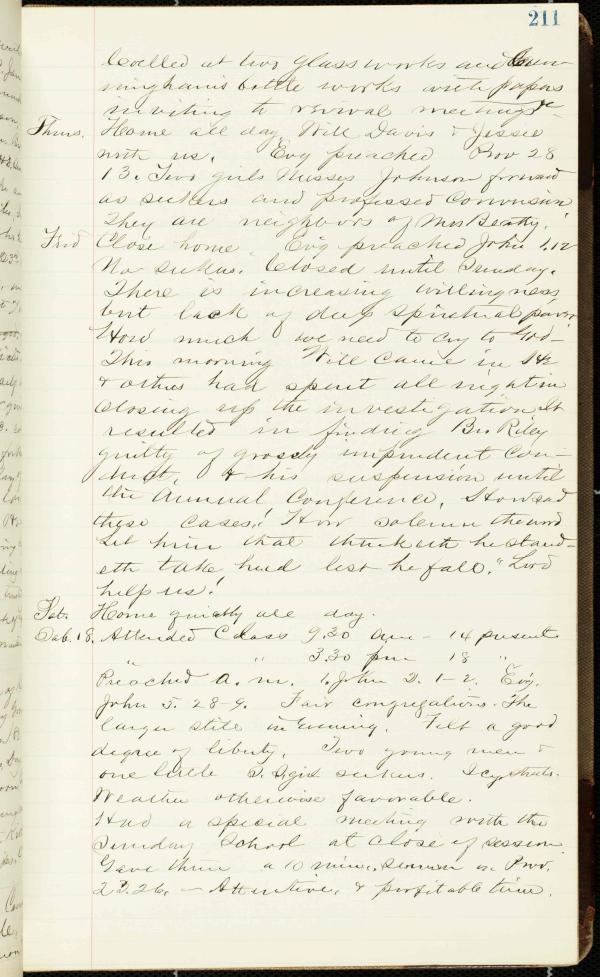 211
Called at two glass works and Cun-
ningham's bottle works with papers
inviting to revival meetings
Thurs. Home all day Will Davis & Jessie
with us. Evg preached Prov 28
13. Two girls Misses Johnson forward
as seekers and professed Conversion
They are neighbors of Mrs Beatty.
Frid Close home Evg preached John 1.12
No seekers. Closed until Sunday.
There is increasing willingness
but lack of deep spiritual power
How much we need to cry to God-
This morning Will came in He
& others had spent all night in
closing up the investigation It
resulted in finding Bro Riley
guilty of grossly imprudent Con-
duct, & his suspension until
the Annual Conference. How sad
these cases! How solemn the word
Let him that thinketh he stand-
eth take heed lest he fall." Lord
help us!
Sat. Home quietly all day.
Sab. 18. Attended Class 9.30 am - 14 present
" " 3.30 pm 18 "
Preached a.m. 1. John 3. 1-2. Evg.
John 5. 28-9. Fair congregations. The
larger still in Evening. Felt a good
degree of liberty. Two young men &
one little S. S. girl seekers. Icy streets.
Weather otherwise favorable.
Had a special meeting with the
Sunday School at close of session
Gave them a 10 min. sermon on Prov.
23.26. - Attentive, & profitable time.